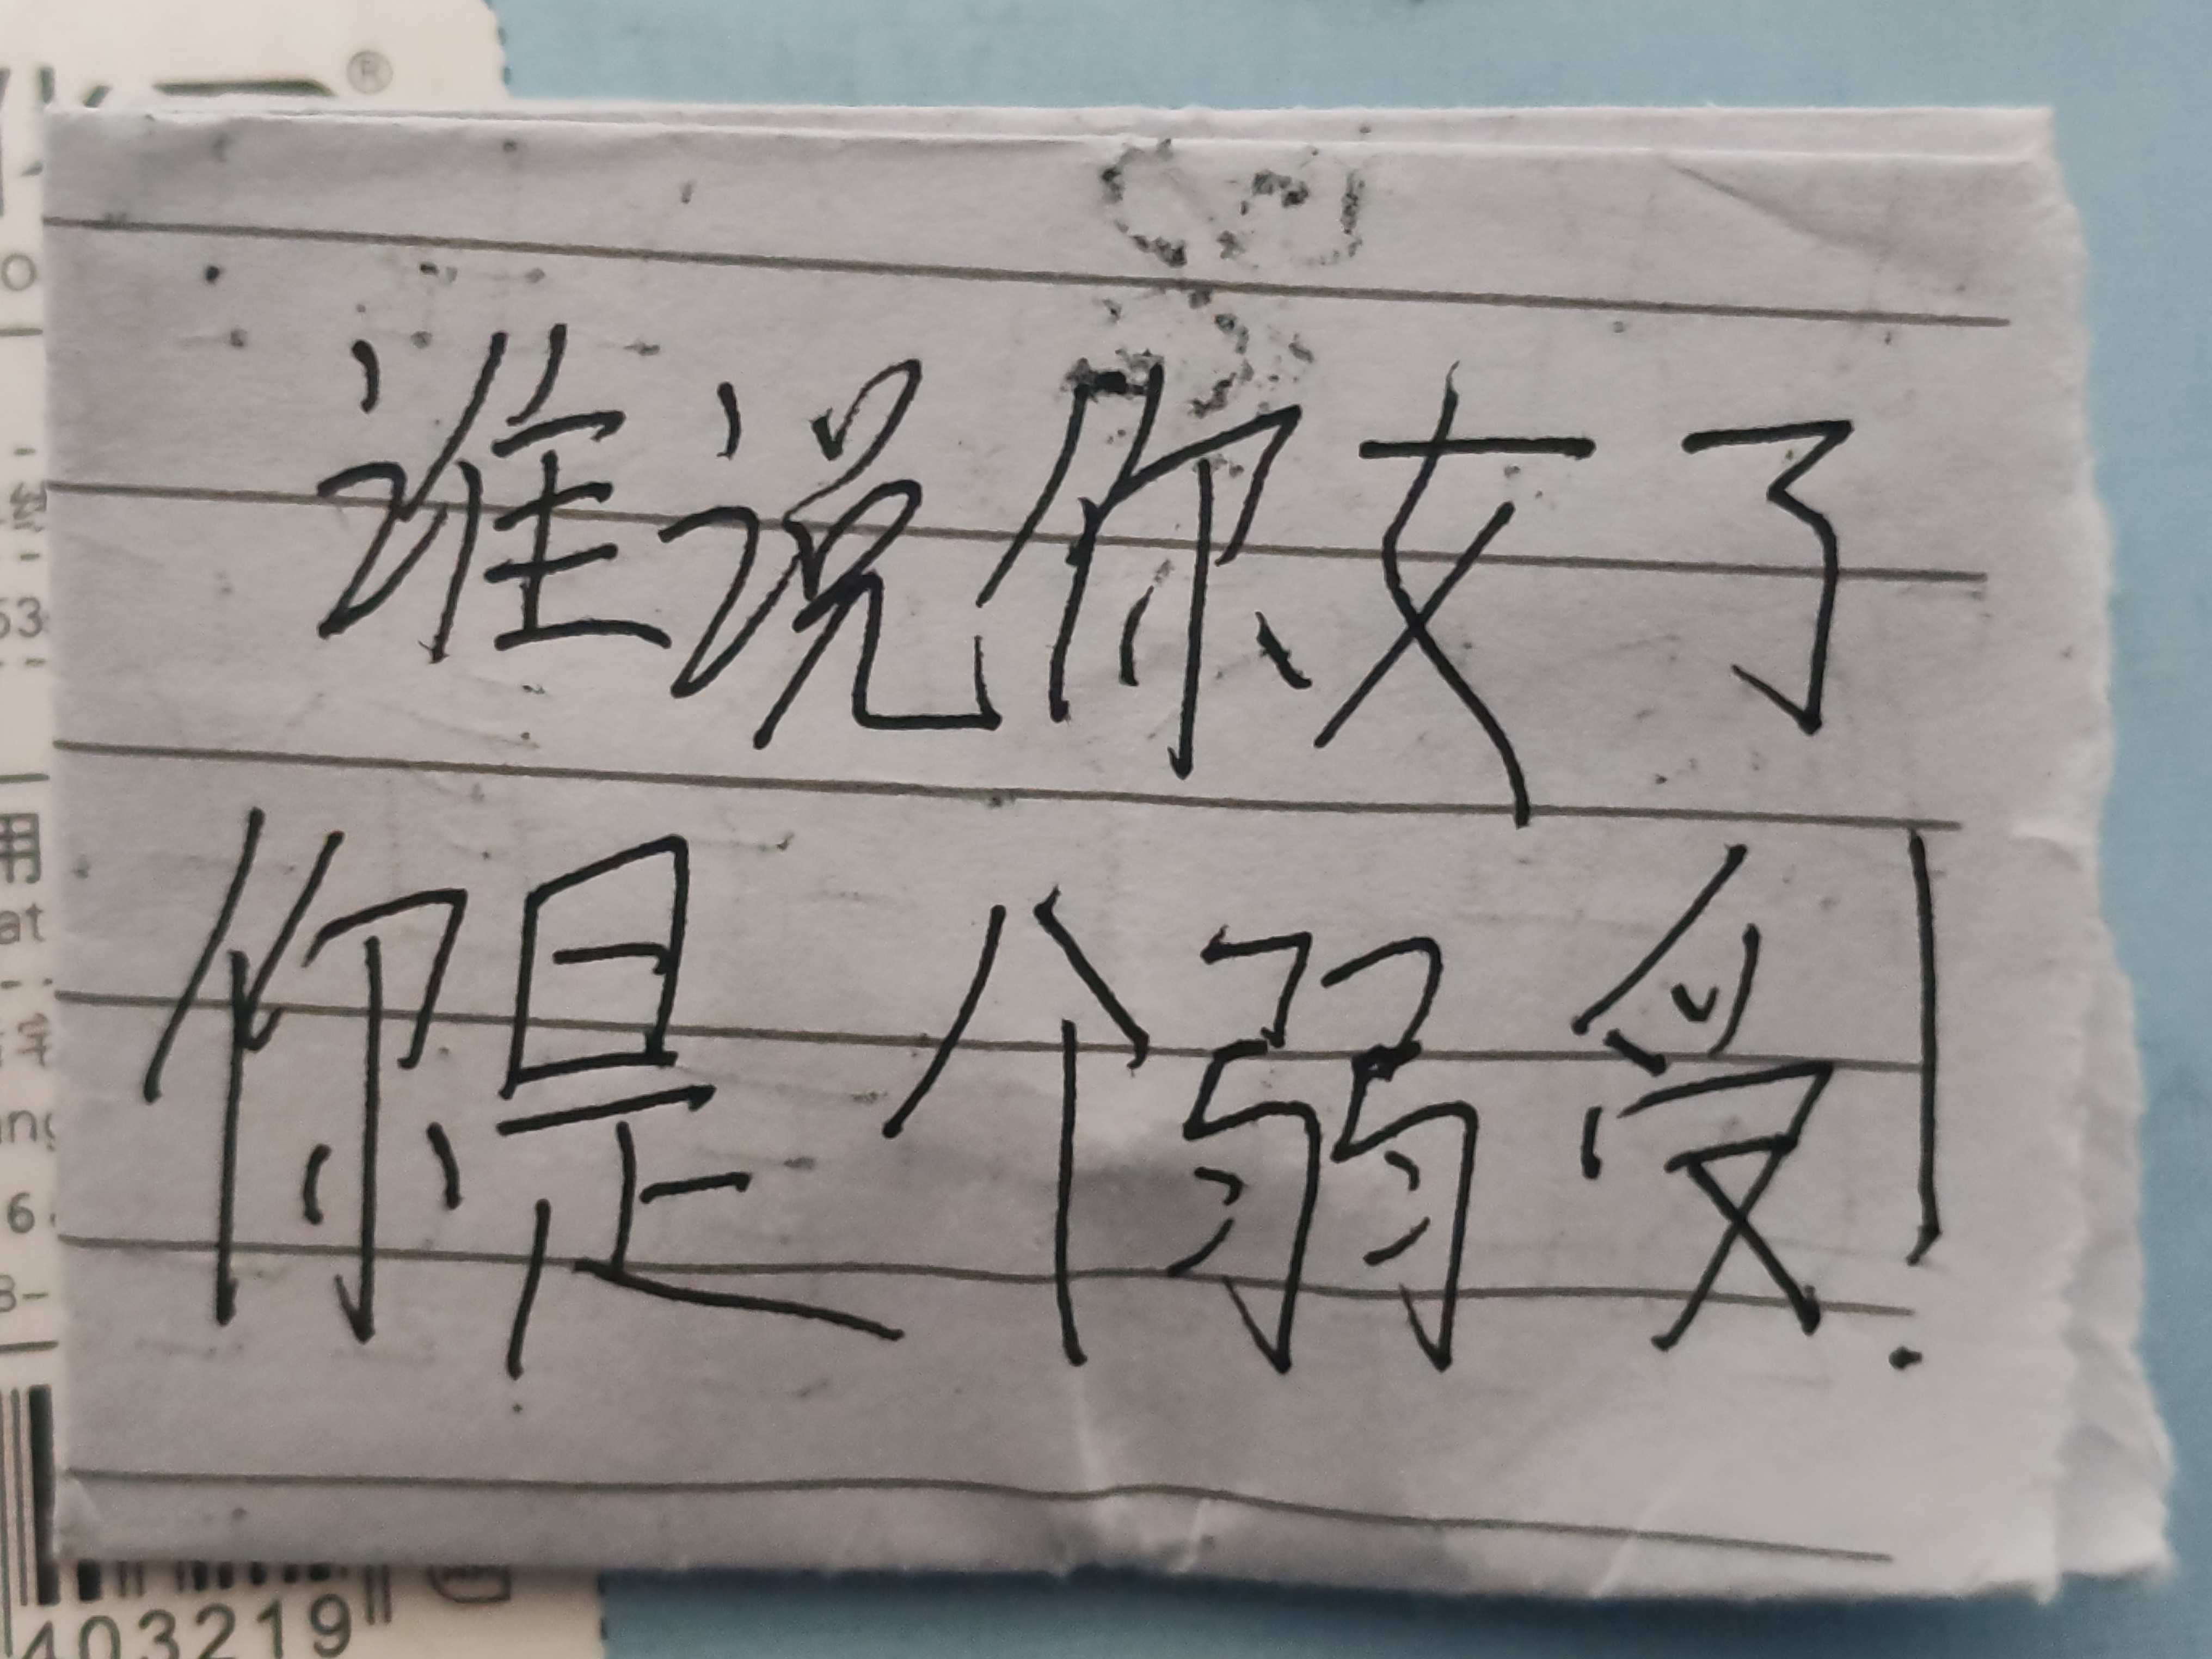 谁说你女了
你是个弱受!
®
o
53
用
at
ng
6
8-
403219